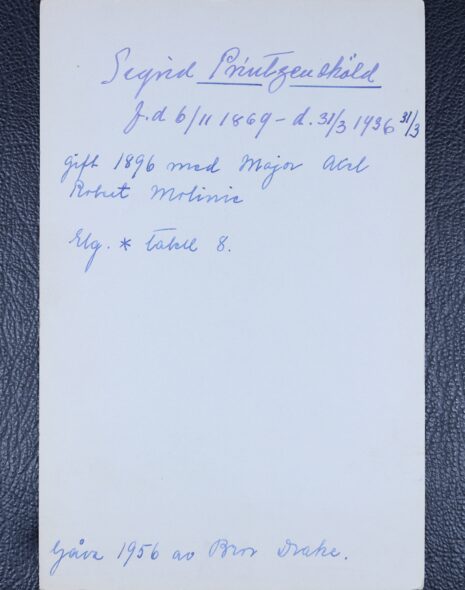 Segrid Printzensköld
f.d 6/11 1869 - d. 31/3 1936 31/3
gift 1896 med Major Axel
Robert Molinie
Elg. * tabell 8.
Gåva 1956 av Bror Drake.